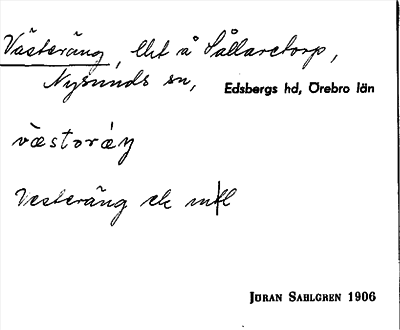 Västeräng, lht å Sållaretorp,
Nysunds sn, Edsbergs hd, Örebro län
væstoræŋ
Vesteräng ek mfl
JÖRAN SAHLGREN 1906